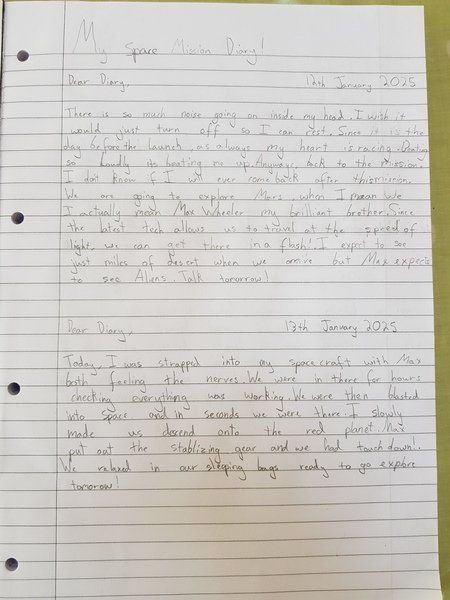 My Space Mission Diary!
Dear Diary, 12th January 2025
There is so much noise going on inside my head. I wish it
would just turn off so I can rest. Since it is the
day before the launch, as always my heart is racing. Beating
so loudly its beating me up. Anyway, back to the mission.
I don't know if I will ever come back after this mission.
We are going to explore Mars, when I mean We
I actually mean Max Wheeler my brilliant brother. Since
the latest tech allows us to travel at the speed of
light, we can get there in a flash! I expect to see
just miles of desert when we arrive but Max expects
to see Aliens. Talk tomorrow!
Dear Diary, 13th January 2025
Today, I was strapped into my spacecraft with Max
both feeling the nerves. We were in there for hours
checking everything was working. We were then blasted
into space and in seconds we were there. I slowly
made us descend onto the red planet. Max
put out the stablizing gear and we had touch down!.
We relaxed in our sleeping bags ready to go explore
tomorow!